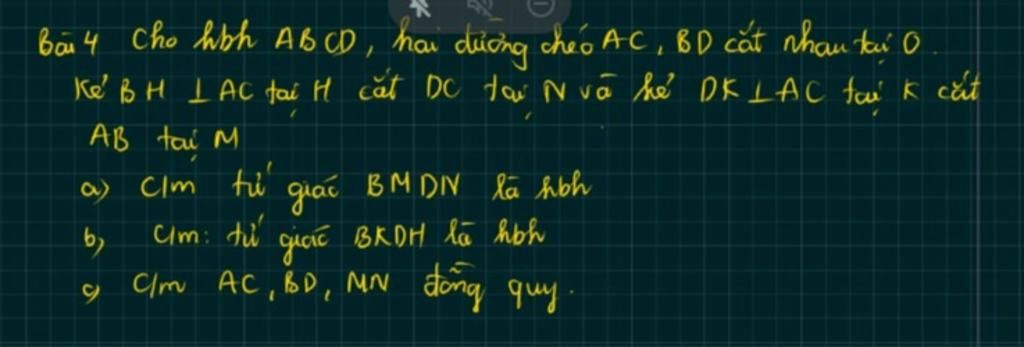 Bài 4 Cho hbh ABCD, hai đường chéo AC, BD cắt nhau tại O.
Kẻ BH ⊥ AC tại H cắt DC tại N và kẻ DK ⊥ AC tại K cắt
AB tại M
a) C/m tứ giác BMDN là hbh
b) C/m: tứ giác BKDH là hbh
c) C/m AC, BD, MN đồng quy.